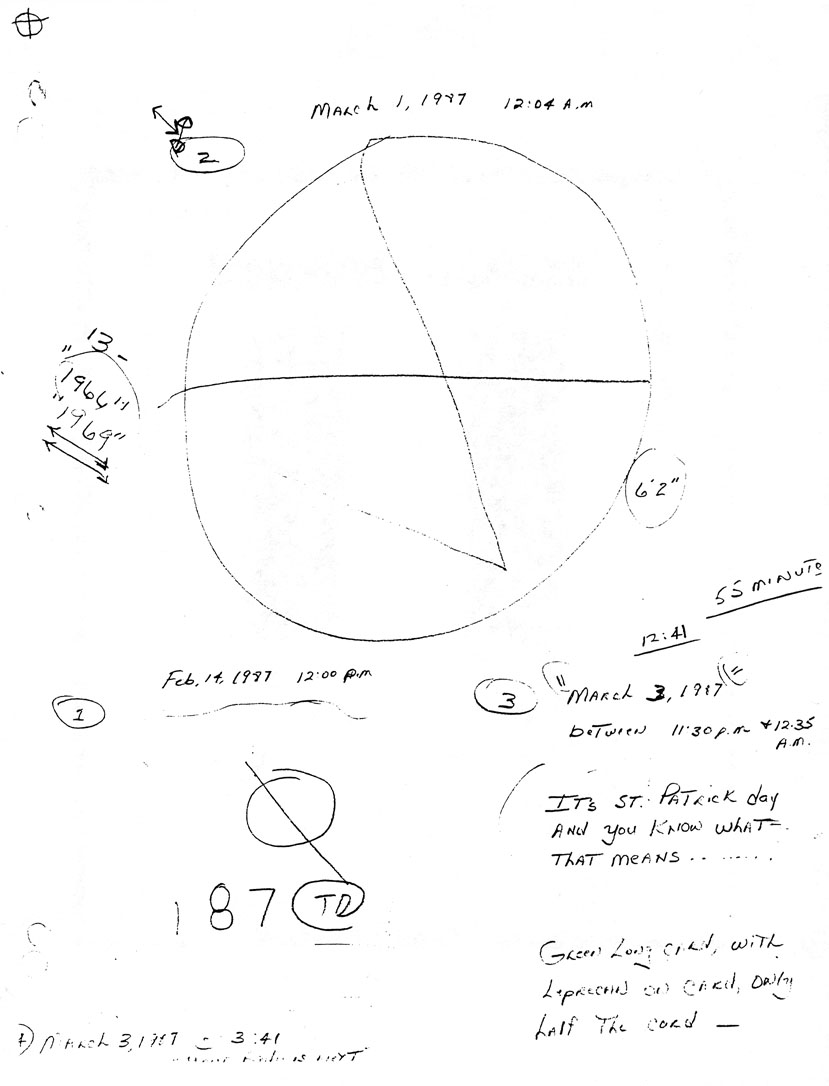 March 1, 1987 12:04 A.M
2
" 13 -
1964"
"1969"
6'2"
55 MINUTE
12:41
Feb, 14, 1987 12:00 P.M
1
3
"MARCH 3, 1987"
between 11:30 p.m + 12:35
A.M.
ITs ST. PATRICK day
AND you KNOW WHAT
THAT MEANS . . . . . . . . .
187 TD
Green Long CARD, WITH
Leprecaun on CARD, ONly
half The card —
March 3, 1987 - 3:41
is NEXT